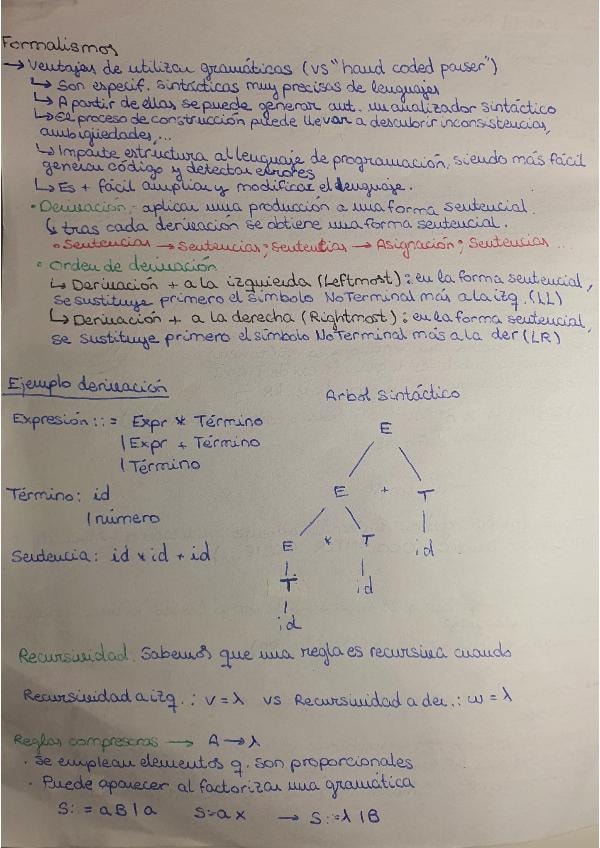 Formalismos
→ Ventajas de utilizar gramáticas (vs "hand coded parser")
↳ Son especif. sintácticas muy precisas de lenguajes
↳ A partir de ellas se puede generar aut. un analizador sintáctico
↳ El proceso de construcción puede llevar a descubrir inconsistencias,
ambigüedades,...
↳ Imparte estructura al lenguaje de programación, siendo más fácil
generar código y detectar errores
↳ Es + fácil ampliar y modificar el lenguaje.
• Derivación: aplicar una producción a una forma sentencial.
↳ tras cada derivación se obtiene una forma sentencial.
• Sentencias → Sentencias; Sentencias → Asignación; Sentencias ...
• Orden de derivación
↳ Derivación + a la izquierda (Leftmost): en la forma sentencial,
se sustituye primero el símbolo No Terminal más a la izq. (LL)
↳ Derivación + a la derecha (Rightmost): en la forma sentencial,
se sustituye primero el símbolo No Terminal más a la der (LR)
Ejemplo derivación
Expresión ::= Expr * Término
| Expr + Término
| Término
Término: id
| número
Sentencia: id * id + id
Arbol sintáctico
E
E + T
E * T id
T id
id
Recursividad. Sabemos que una regla es recursiva cuando
Recursividad a izq.: v = λ vs Recursividad a der.: w = λ
Reglas compresoras → A → λ
· Se emplean elementos q. son proporcionales
· Puede aparecer al factorizar una gramática
S: = aB | a S:= a x → S: = λ | B